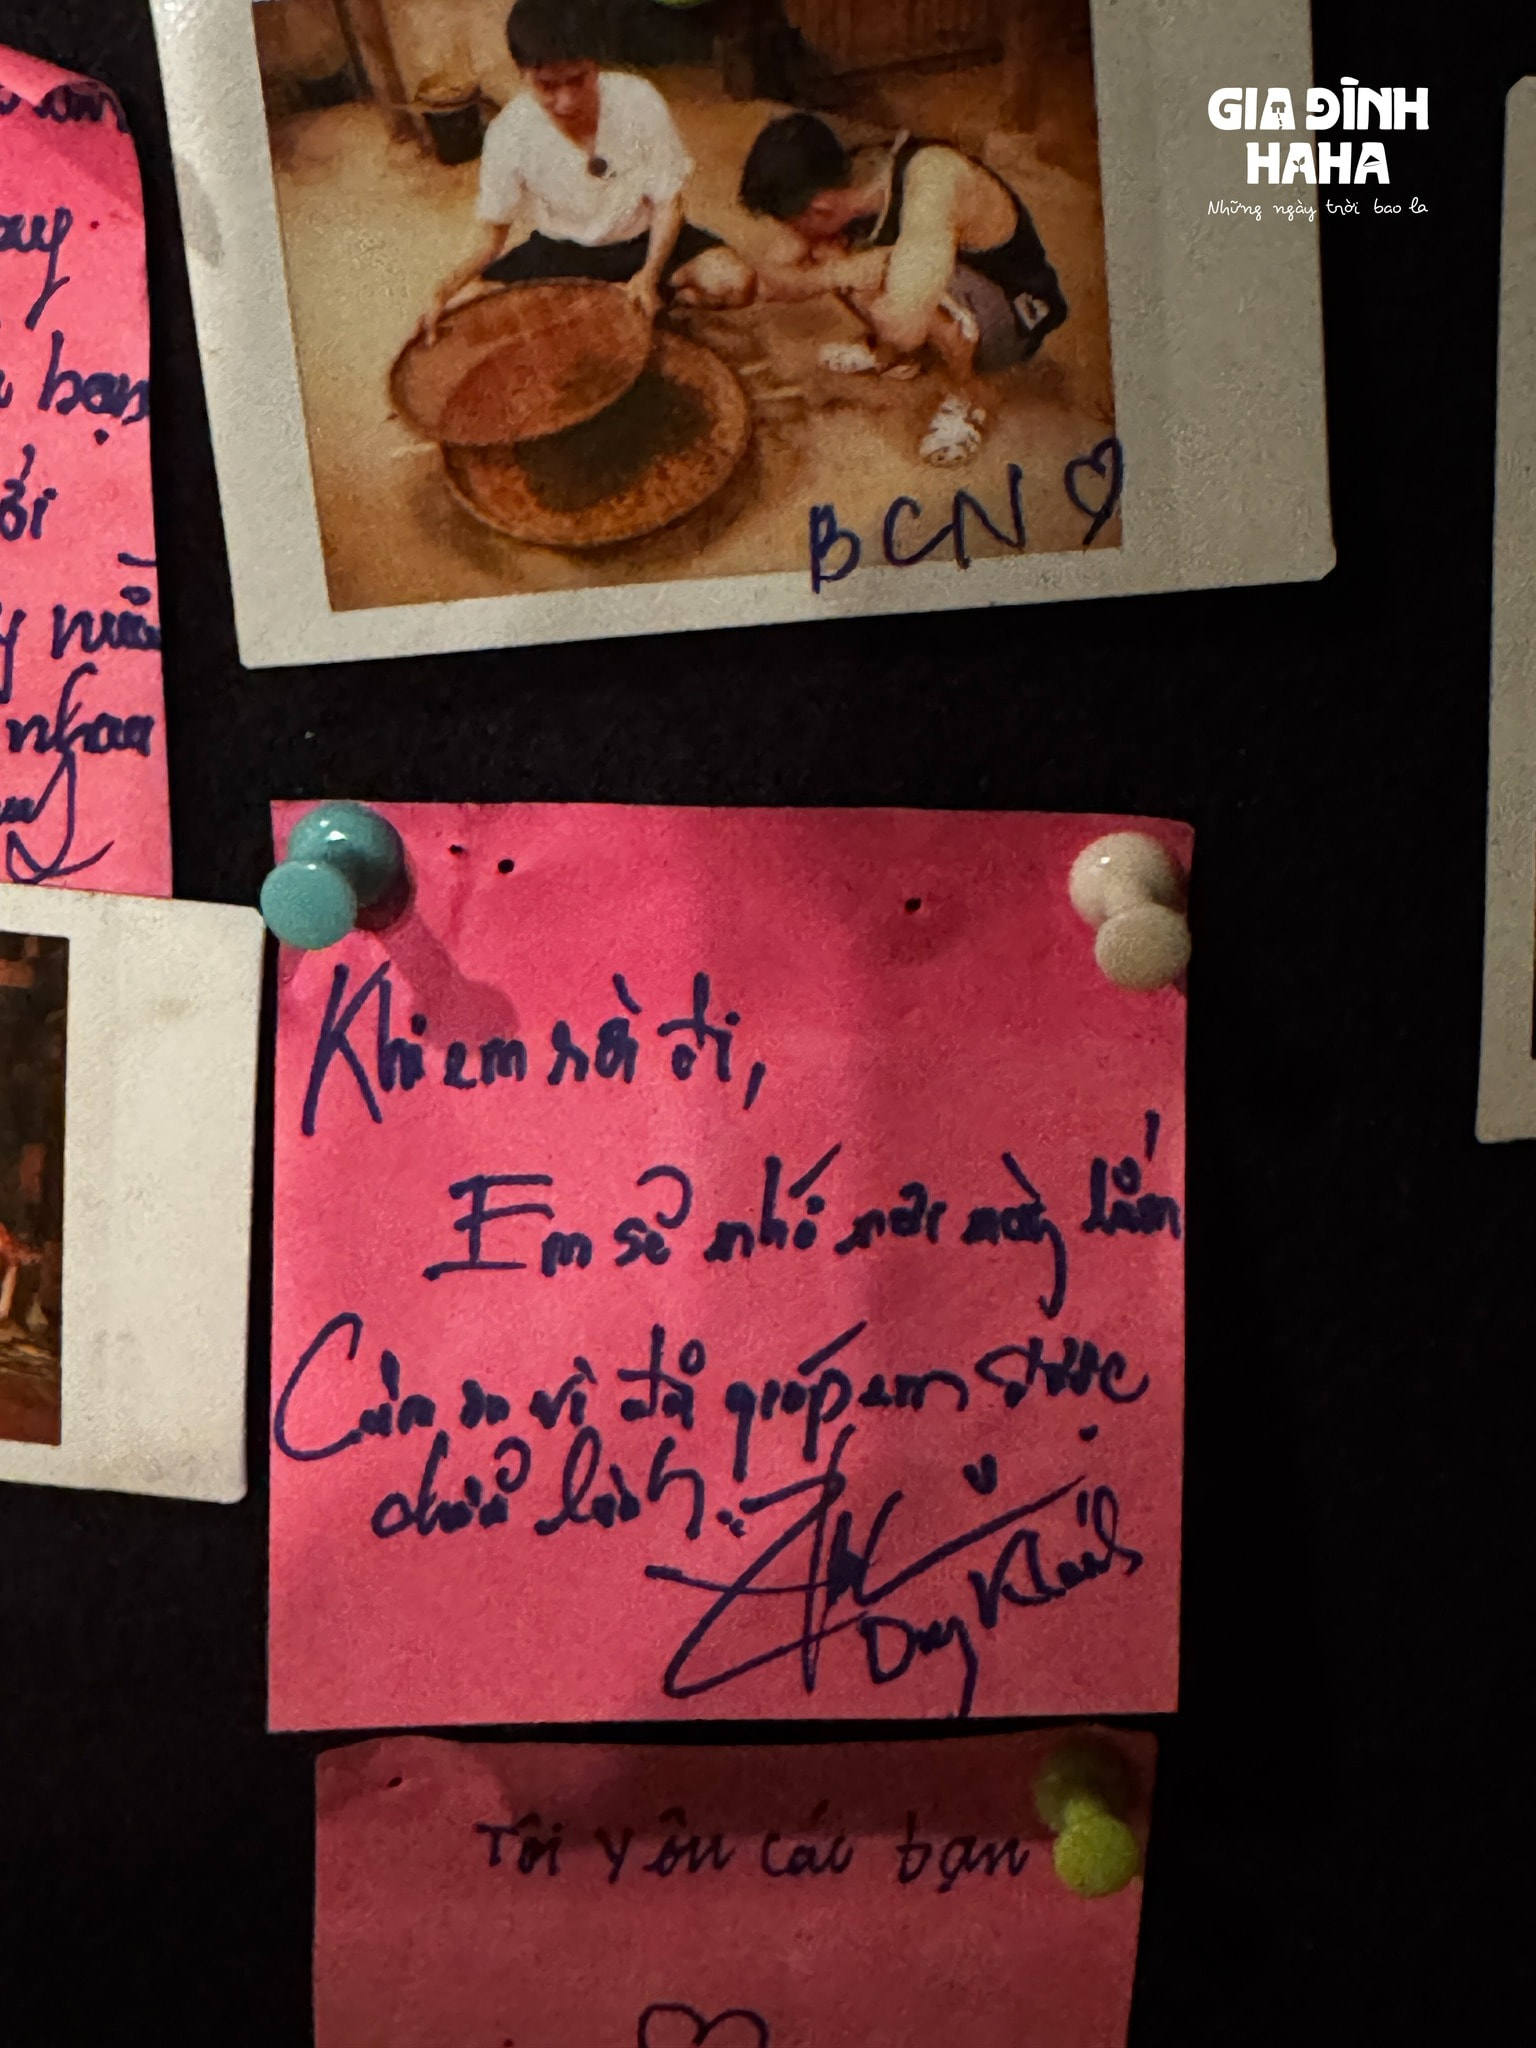 GIA ĐÌNH
HAHA
Những ngày trời bao la
BCN
bạn
nhau
Khi em rời đi,
Em sẽ nhớ nơi này lắm
Cảm ơn vì đã giúp em được
chữa lành.
Duy Khánh
Tôi yêu các bạn